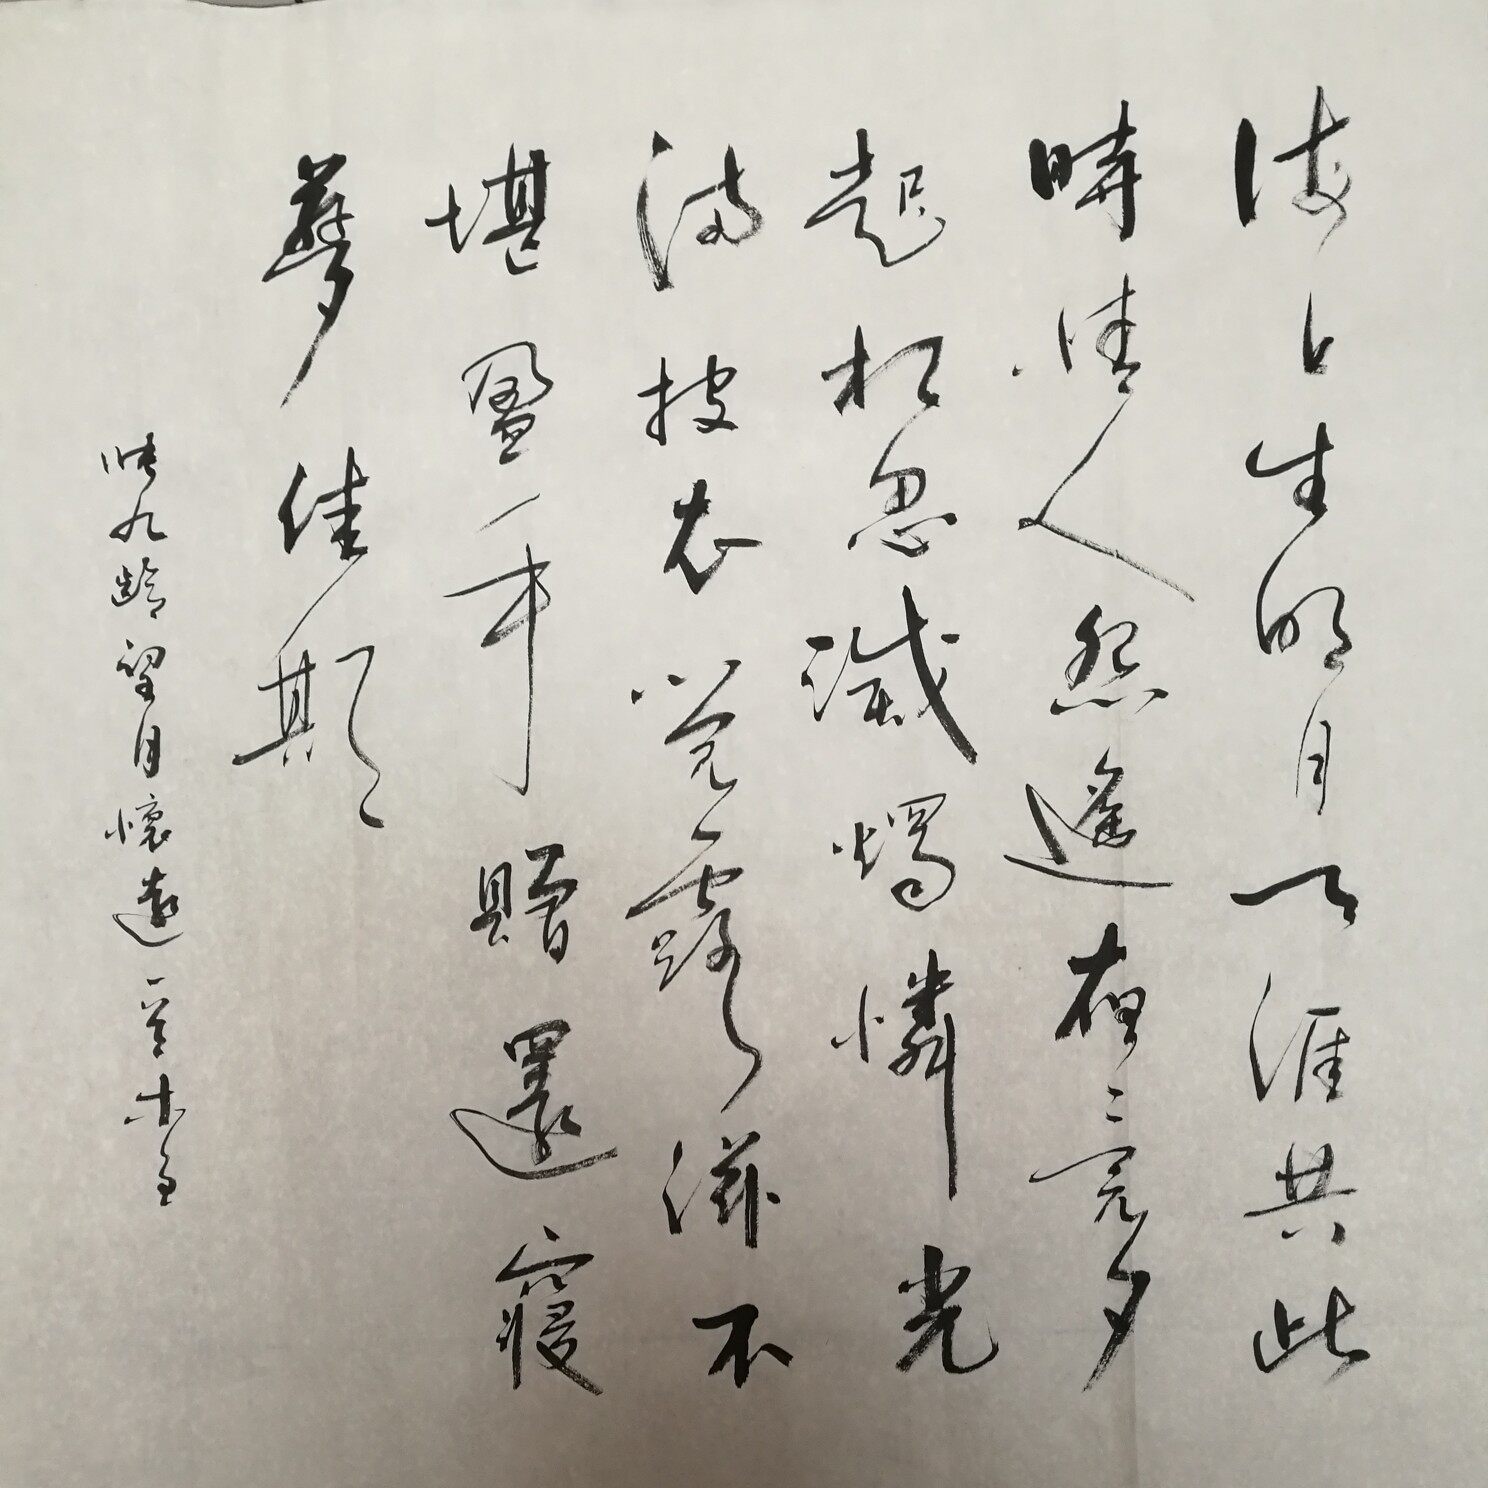 海上生明月天涯共此
時情人怨遙夜竟夕
起相思滅燭憐光
滿披衣覺露滋不
堪盈手贈還寢
夢佳期
張九齡望月懷遠一首